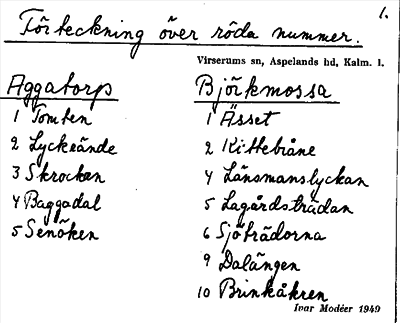 1.
Förteckning över röda nummer.
Virserums sn, Aspelands hd, Kalm. l.
Aggatorp
1 Tomten
2 Lyckeände
3 Skrocken
4 Baggadal
5 Senöken
Björkmossa
1 Ässet
2 Kittebråne
4 Länsmanslyckan
5 Lagårdsträdan
6 Sjöträdorna
9 Dalängen
10 Brinkåkren
Ivar Modéer 1949